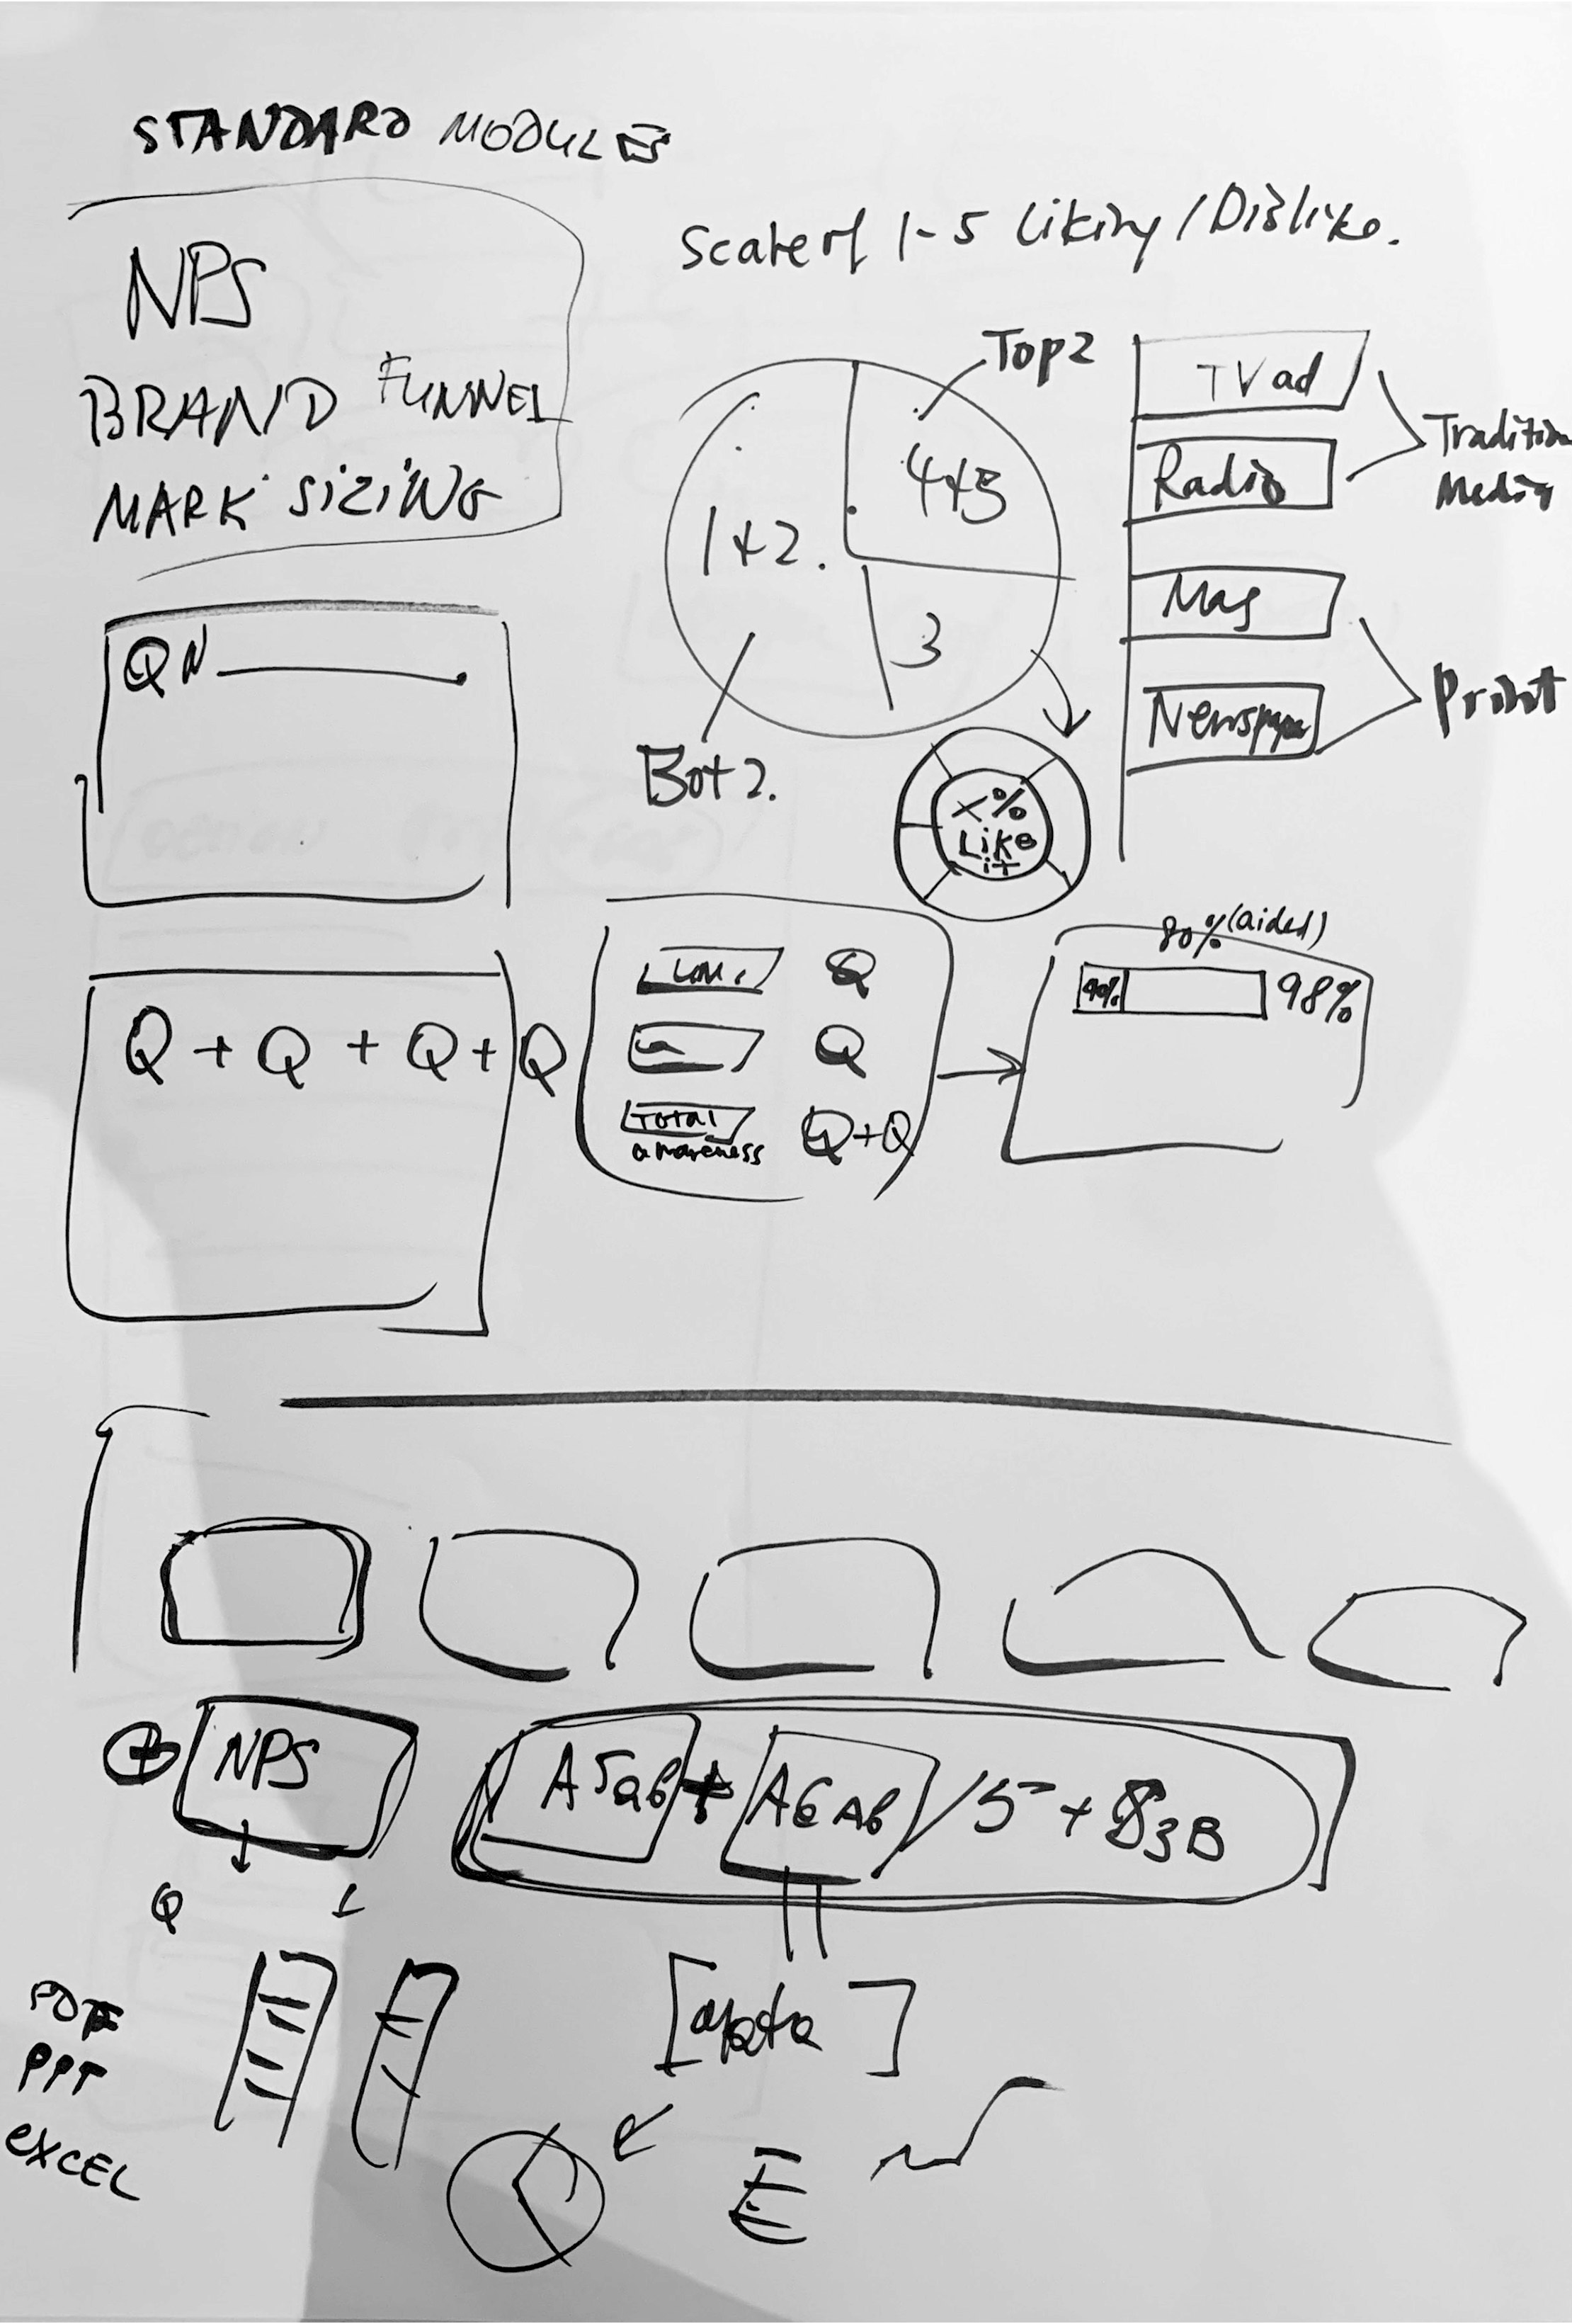 STANDARD MODULES
NPS
BRAND FUNNEL
MARK SIZING
Scale of 1-5 Liking / Dislike.
Top 2
4+5
1+2.
3
Bot 2.
X%
Like
it
TV ad
Radio
Tradition
Media
Mag
Newspaper
Print
QN
Q + Q + Q + Q
Q
Q
Total
awareness
Q+Q
80% (aided)
40%
98%
NPS
A5ab + A6AB / 5 + B3B
Q
PDF
PPT
EXCEL
[data]